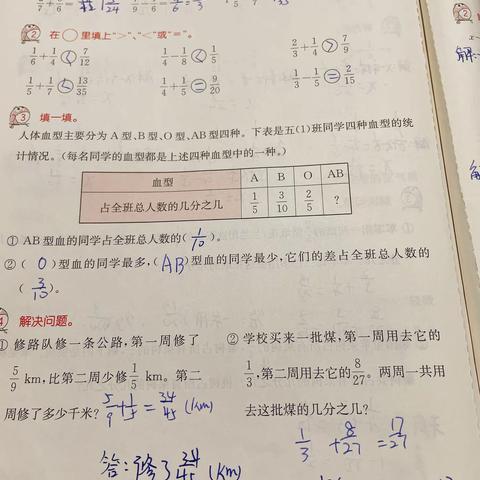 ② 在○里填上“>”、“<”或“=”。
1/6+1/4 < 7/12 1/4-1/8 < 1/5 2/3+1/4 > 7/9
1/5+1/7 < 13/35 1/4+1/5 = 9/20 1/3-1/5 = 2/15
③ 填一填。
人体血型主要分为 A 型、B 型、O 型、AB 型四种。下表是五(1)班同学四种血型的统
计情况。(每名同学的血型都是上述四种血型中的一种。)
血型 A B O AB
占全班总人数的几分之几 1/5 3/10 2/5 ?
① AB 型血的同学占全班总人数的( 1/10 )。
② ( O )型血的同学最多,( AB )型血的同学最少,它们的差占全班总人数的
( 3/10 )。
4 解决问题。
① 修路队修一条公路,第一周修了
5/9 km,比第二周少修 1/5 km。第二
周修了多少千米? 5/9+1/5=34/45 (km)
答:修了34/45 (km)
② 学校买来一批煤,第一周用去它的
1/3,第二周用去它的 8/27。两周一共用
去这批煤的几分之几?
1/3+8/27=17/27